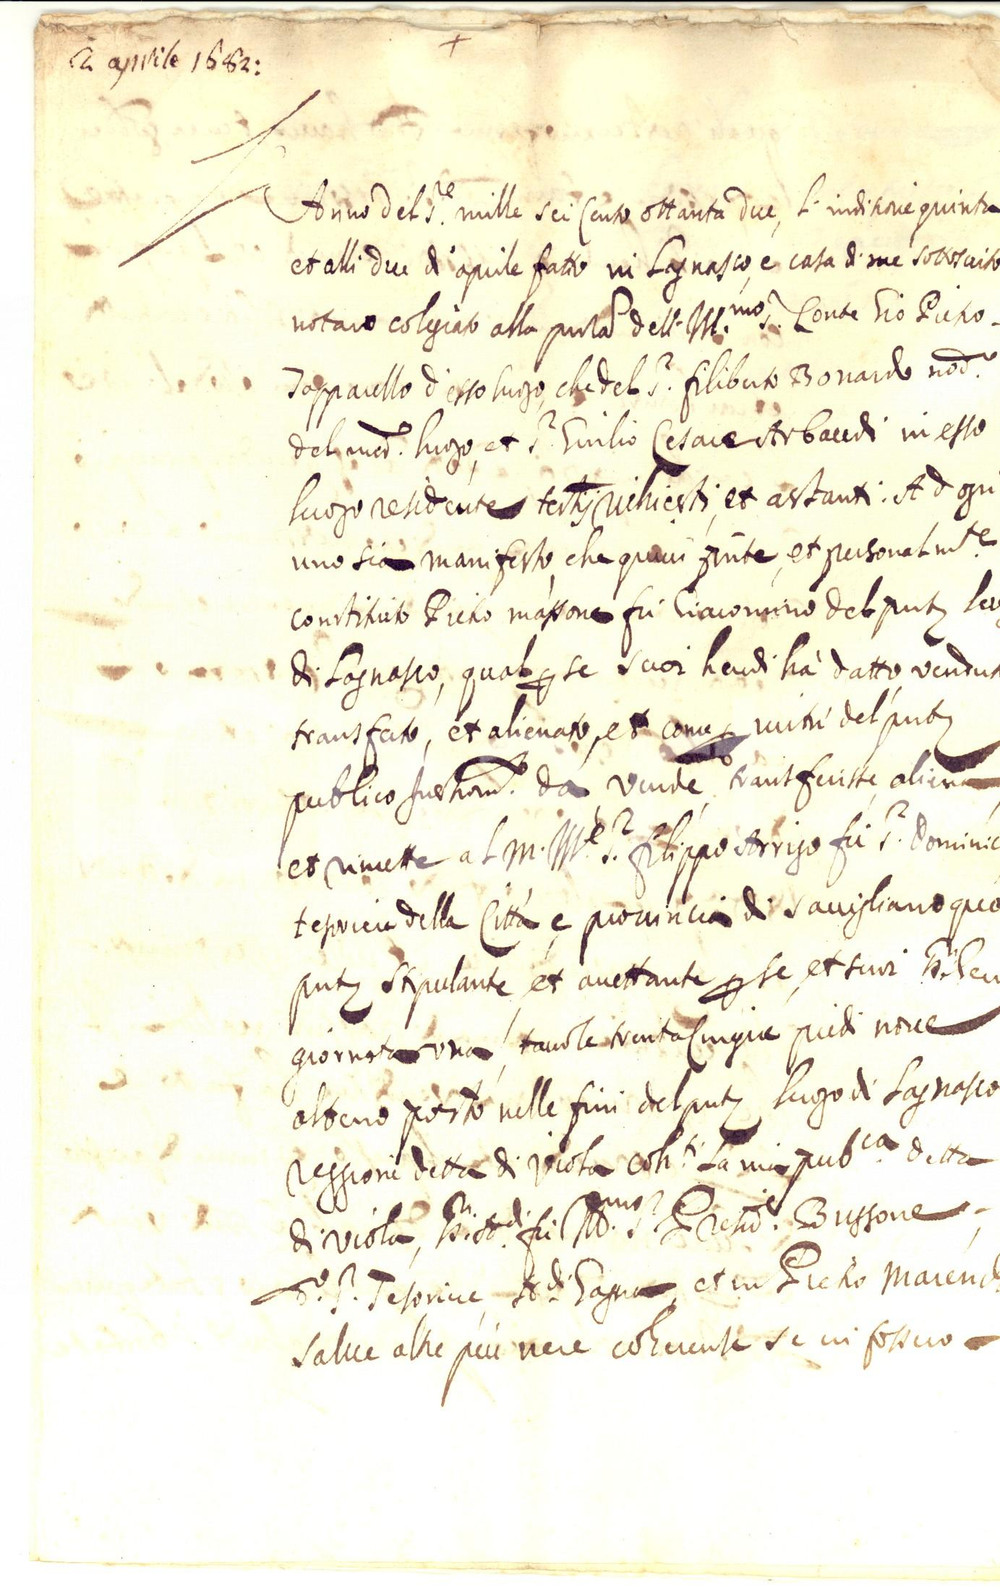 2 aprile 1682:
+
Anno del S.re mille sei Cento ottanta due, l'inditione quinta
et alli due d'aprile fatto in Lagnasco, e casa di me sottoscritto
notaro colegiato alla pnza dell'Ill.mo S.r Conte Gio Pietro
Tapparello d'esso luogo, che del S.r filiberto Bonardo nod.o
del med.o luogo, et S.r Giulio Cesare Arbaudi in esso
luogo residente testij richiesti, et astanti. Ad ogn
uno sia manifesto, che quivi pnte, et personalm.te
constituto Pietro massone fu Giacomino del pnte luog
di Lagnasco, qual p se suoi heredi hà datto, vendut
transferto, et alienato, et come p virtù del pnte
publico Instrom.to da, vende, transferisse, aliena
et rimette al m. Ill.e S.r filippo Arrigo fu S.r Dominic
tesoriere della Città, e provincia di Savigliano qui
pnte stipulante, et accettante p se, et suoi
giornata una, tavole trenta Cinque piedi nove
alteno posto nelle fini del pnte luogo di Lagnasco
reggione detta di viola coh.ti la via pub.ca detta
di viola, fu Ill.mo S.r Presid.e Bussone
d.o S.r Tesoriere, et in Pietro Marend
salve altre più vere coherenze se vi fossero